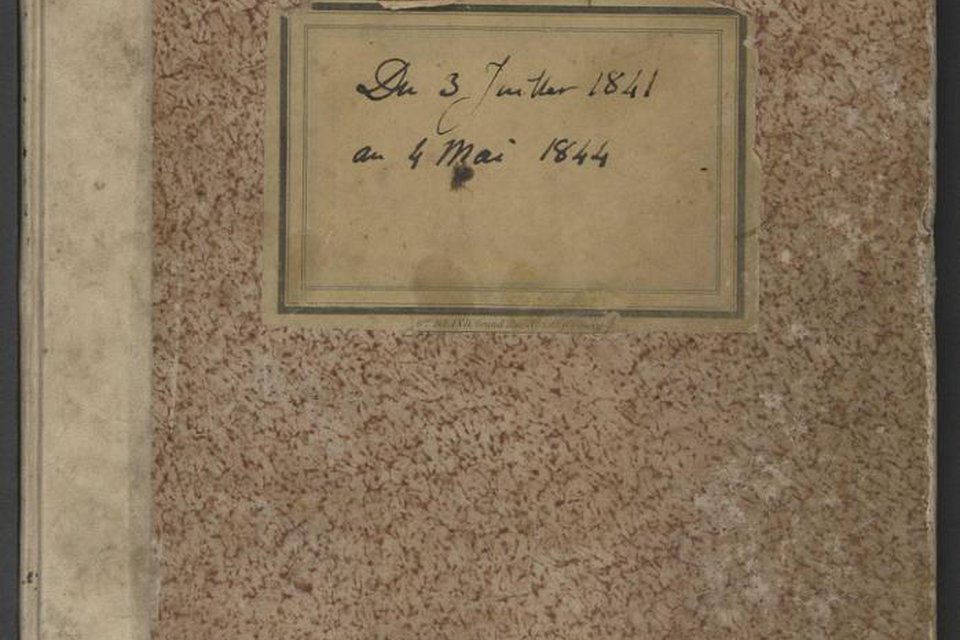 Du 3 Juillet 1841
au 4 Mai 1844